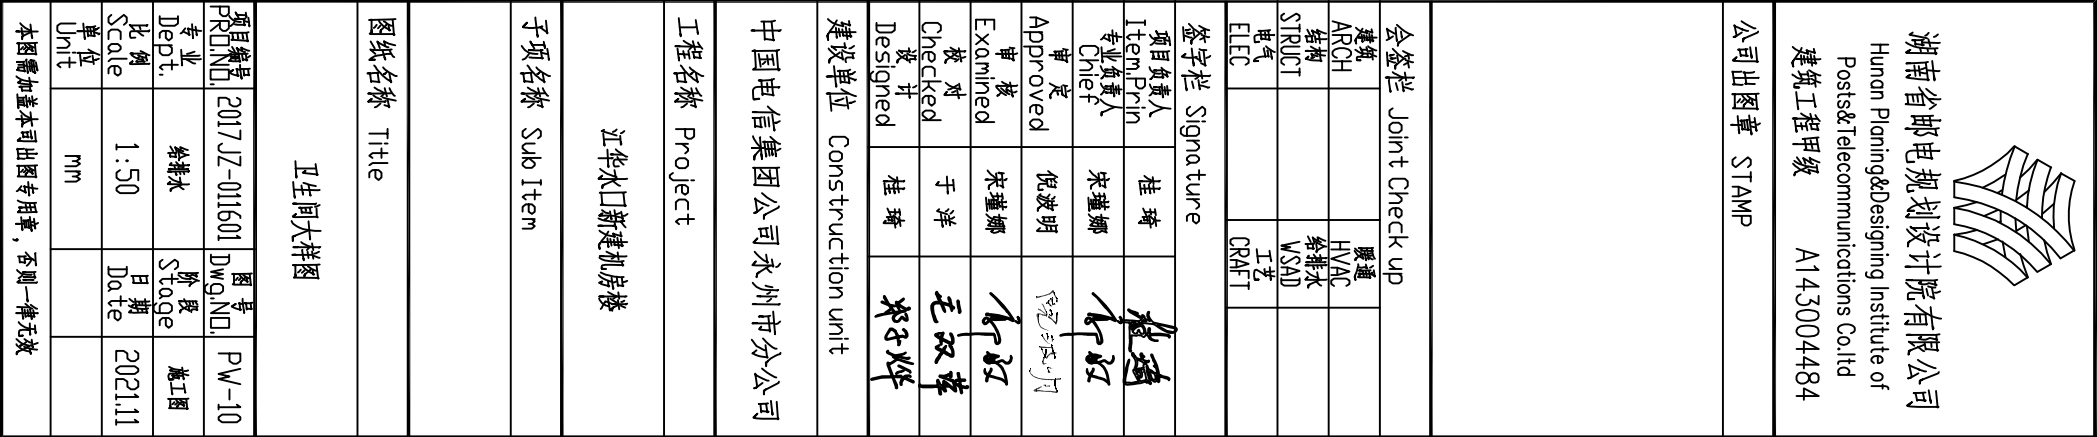 湖南省邮电规划设计院有限公司
Hunan Planing&Designing Institute of
Posts&Telecommunications Co.ltd
建筑工程甲级 A143004484
公司出图章 STAMP
会签栏 Joint Check up
建筑 ARCH 暖通 HVAC
结构 STRUCT 给排水 WSAD
电气 ELEC 工艺 CRAFT
签字栏 Signature
项目负责人 Item.Prin 桂琦
专业负责人 Chief 宋瑾娜
审定 Approved 倪波明
审核 Examined 宋瑾娜
校对 Checked 于洋
设计 Designed 桂琦
建设单位 Construction unit
中国电信集团公司永州市分公司
工程名称 Project
江华水口新建机房楼
子项名称 Sub Item
图纸名称 Title
卫生间大样图
项目编号 PRO.NO. 2017JZ-011601 图号 Dwg.NO. PW-10
专业 Dept. 给排水 阶段 Stage 施工图
比例 Scale 1:50 日期 Date 2021.11
单位 Unit mm
本图需加盖本司出图专用章，否则一律无效